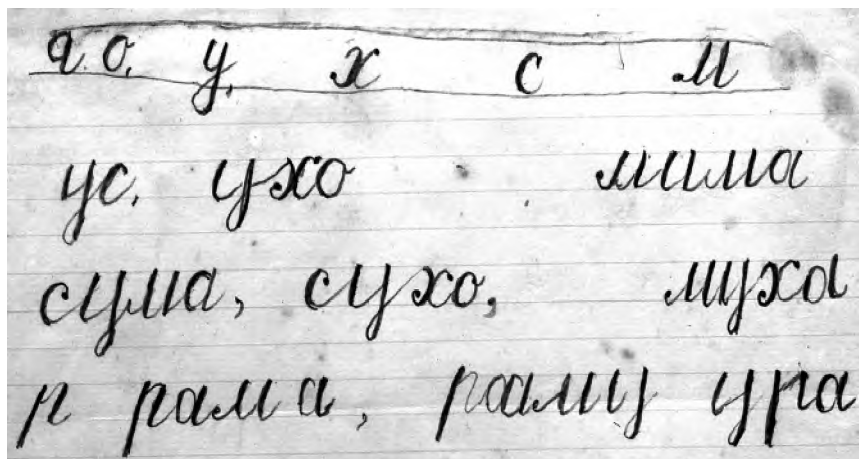 а о, у, х с м
ус, ухо мама
сума, сухо, муха
р рама, раму ура